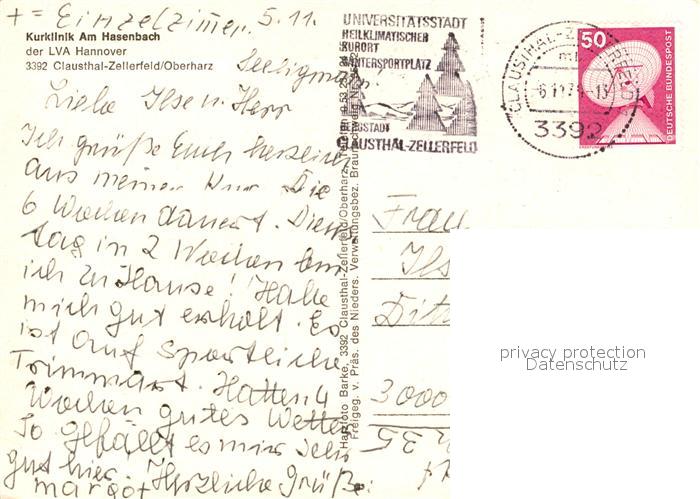 + = Einzelzimmer. 5.11.
Kurklinik Am Hasenbach
der LVA Hannover
3392 Clausthal-Zellerfeld/Oberharz
Liebe Ilse u. Herr
Seeligmann
Ich grüße Euch herzlich
aus meiner Kur. Die
6 Wochen dauert. Diens
tag in 2 Wochen bin
ich zu Hause! Habe
mich gut erholt. Es
ist auf sportliche
Trimmart. Hatten 4
Wochen gutes Wetter
So gefällt es mir sehr
gut hier. Herzliche Grüße:
Margot
UNIVERSITÄTSSTADT
HEILKLIMATISCHER
KURORT
WINTERSPORTPLATZ
BERGSTADT
CLAUSTHAL-ZELLERFELD
CLAUSTHAL-ZELLERFELD
3392
50
DEUTSCHE BUNDESPOST
Foto Barke, 3392 Clausthal-Zellerfeld/Oberharz, Telefon
Freigeg. v. Präs. des Nieders. Verwaltungsbez. Braunschweig Nr.
Frau
Ils
3000
35
privacy protection
Datenschutz